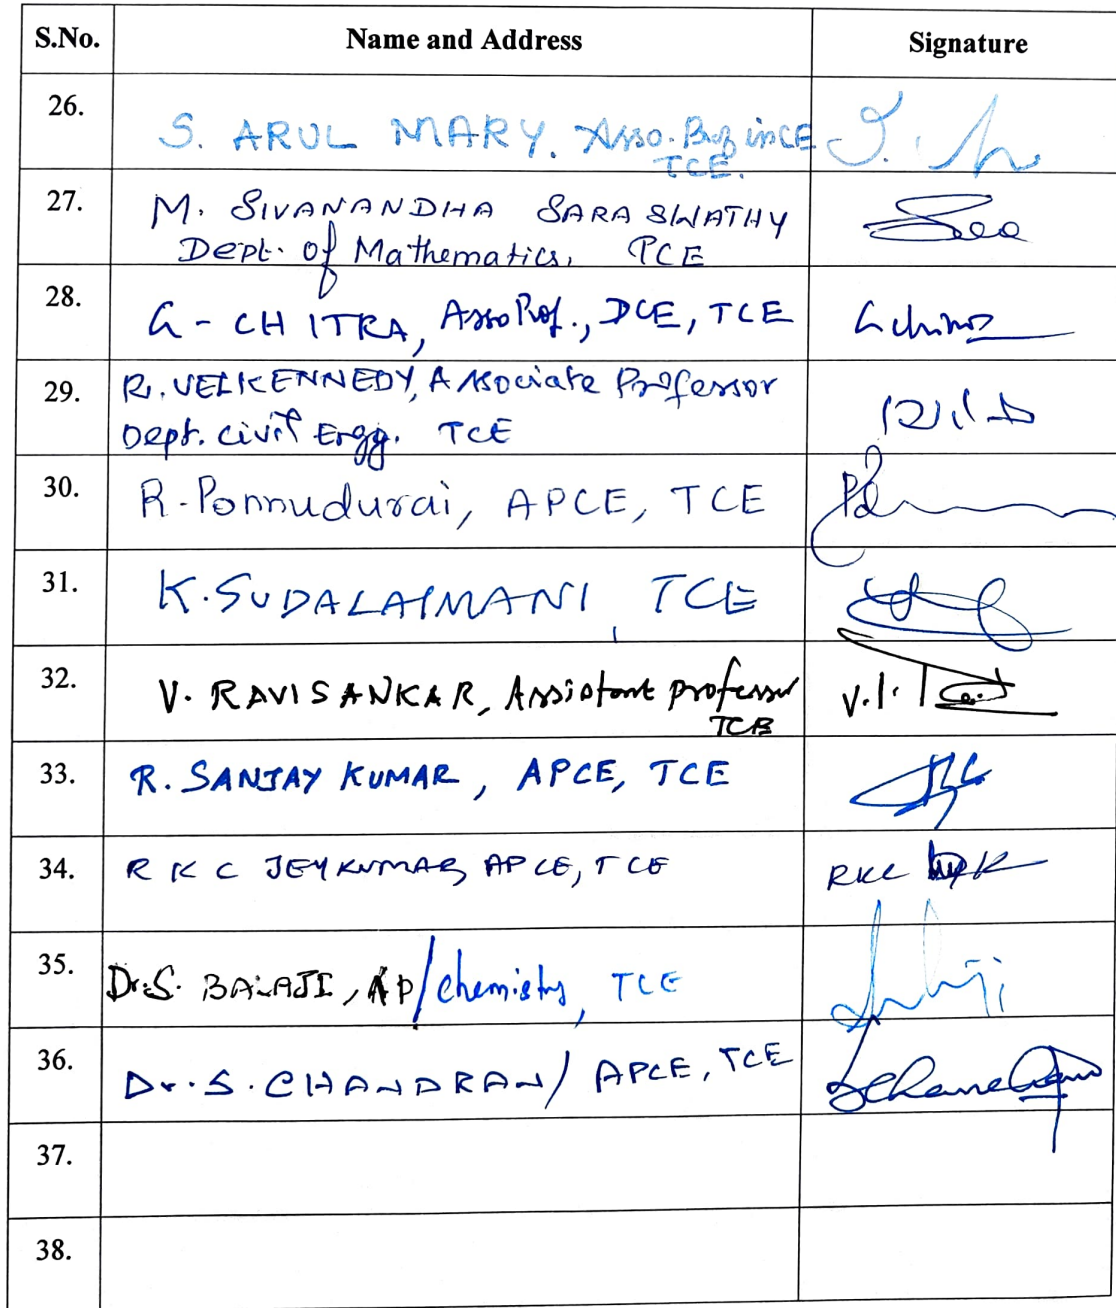 S.No. Name and Address Signature
26. S. ARUL MARY. Asso. Prof in CE
TCE.
27. M. SIVANANDHA SARASWATHY
Dept. of Mathematics, TCE
28. G - CHITRA, Asso Prof., DCE, TCE
29. R. VELKENNEDY, Associate Professor
Dept. civil Engg. TCE
30. R. Ponnudurai, APCE, TCE
31. K. SUDALAIMANI, TCE
32. V. RAVISANKAR, Assistant professor
TCE
33. R. SANJAY KUMAR, APCE, TCE
34. R K C JEYKUMAR, APCE, TCE RKC
35. Dr. S. BALAJI, AP/chemistry, TCE
36. Dr. S. CHANDRAN/ APCE, TCE
37.
38.